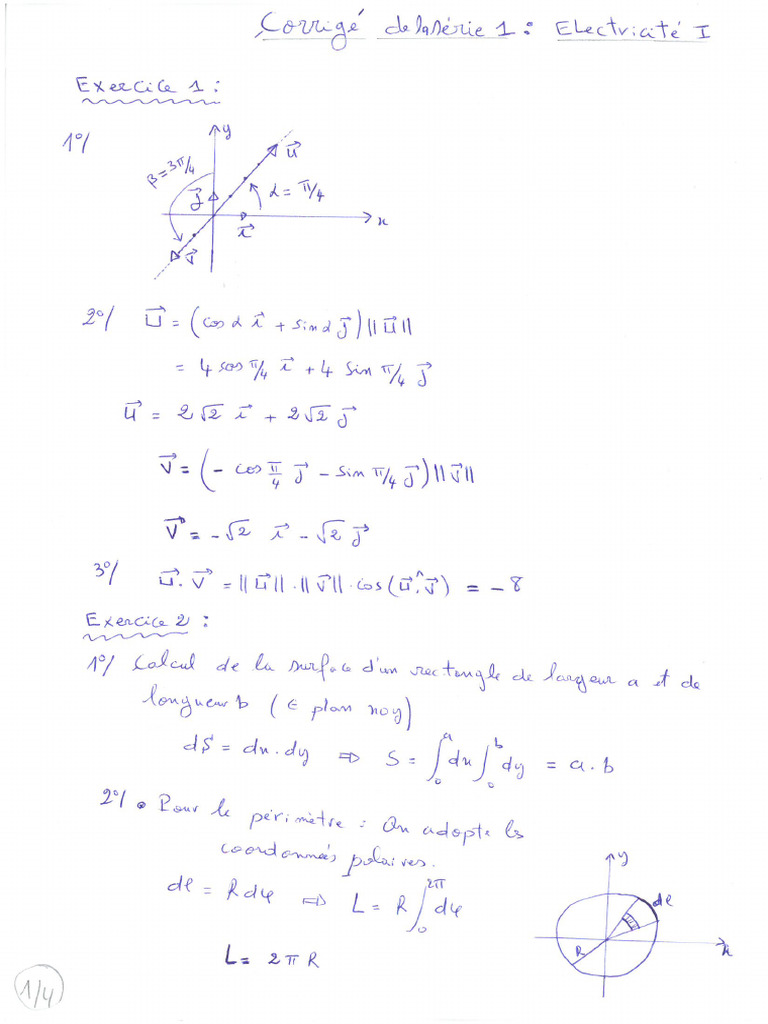 Corrigé de la série 1 : Electricité I
Exercice 1 :
1°/
y
β = 3π/4
u⃗
j⃗
α = π/4
x
i⃗
v⃗
2°/ U⃗ = (cos α i⃗ + sin α j⃗) ||U⃗||
= 4 cos π/4 i⃗ + 4 sin π/4 j⃗
U⃗ = 2√2 i⃗ + 2√2 j⃗
V⃗ = (- cos π/4 j⃗ - sin π/4 j⃗) ||V⃗||
V⃗ = -√2 i⃗ - √2 j⃗
3°/ U⃗.V⃗ = ||U⃗|| . ||V⃗|| . cos(U⃗.^V⃗) = - 8
Exercice 2 :
1°/ Calcul de la surface d'un rectangle de largeur a et de
longueur b (∈ plan xoy)
dS = dx.dy ⇒ S = ∫₀ᵃ dx ∫₀ᵇ dy = a.b
2°/ • Pour le périmètre : On adopte les
coordonnées polaires.
dl = R dφ ⇒ L = R ∫₀^2π dφ
L = 2πR
y
dl
R
x
1/4